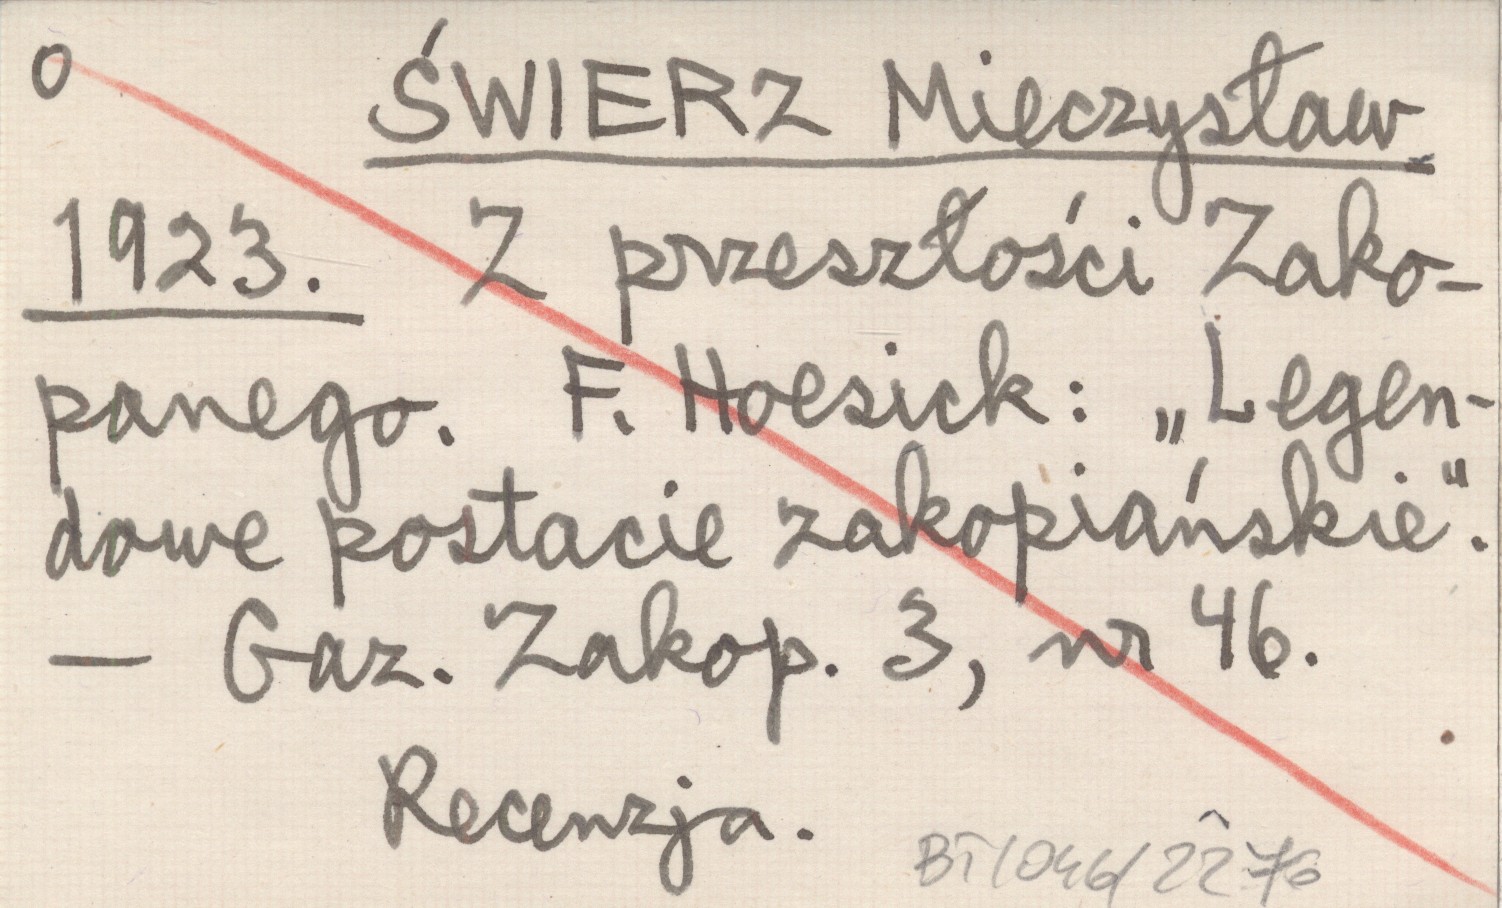 O ŚWIERZ Mieczysław
1923. Z przeszłości Zako-
panego. F. Hoesick: „Legen-
dowe postacie zakopiańskie".
— Gaz. Zakop. 3, nr 46.
Recenzja.
BT/046/2276